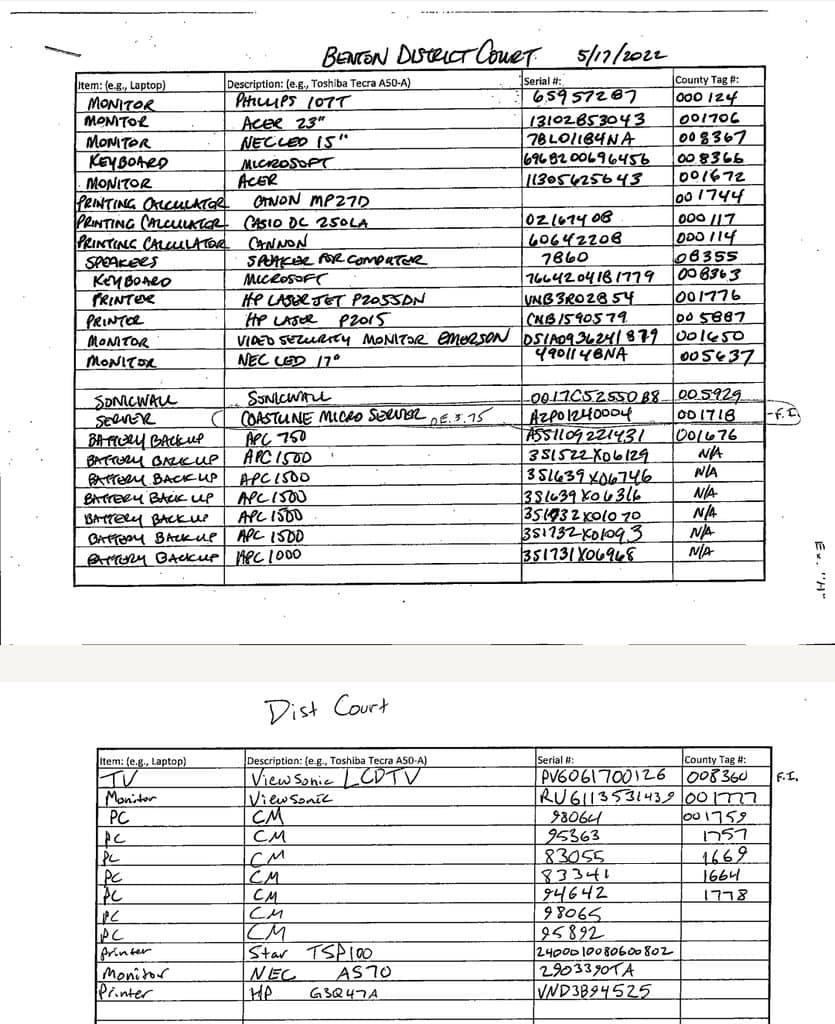 BENTON DISTRICT COURT 5/17/2022
Item: (e.g., Laptop) Description: (e.g., Toshiba Tecra A50-A) Serial #: County Tag #:
MONITOR PHILLIPS 107T 65957287 000124
MONITOR ACER 23" 13102853043 001706
MONITOR NEC LED 15" 78L01184NA 008367
KEYBOARD MICROSOFT 6968200696456 008366
MONITOR ACER 11305625643 001672
PRINTING CALCULATOR CANON MP27D 001744
PRINTING CALCULATOR CASIO DC 250LA 02167408 000117
PRINTING CALCULATOR CANNON 60642208 000114
SPEAKERS SPEAKER FOR COMPUTER 7860 08355
KEYBOARD MICROSOFT 7664204181779 008363
PRINTER HP LASERJET P2055DN VNB3R02854 001776
PRINTER HP LASER P2015 CNB1590579 005887
MONITOR VIDEO SECURITY MONITOR EMERSON DS1A0936241879 001650
MONITOR NEC LED 17" 4901148NA 005637
SONICWALL SONICWALL 0017C52550B8 005929
SERVER COASTLINE MICRO SERVER OE.5.75 AZP01240004 001718 F.I.
BATTERY BACKUP APC 750 AS51109221431 001676
BATTERY BACKUP APC 1500 3S1522X06129 N/A
BATTERY BACK UP APC 1500 3S1639X06746 N/A
BATTERY BACK UP APC 1500 3S1639X06316 N/A
BATTERY BACK UP APC 1500 3S1732X01070 N/A
BATTERY BACKUP APC 1500 3S1732X01093 N/A
BATTERY BACKUP APC 1000 3S1731X06968 N/A
Ex. "H"
Dist Court
Item: (e.g., Laptop) Description: (e.g., Toshiba Tecra A50-A) Serial #: County Tag #:
TV ViewSonic LCDTV PV6061700126 008360 F.I.
Monitor ViewSonic RU6113531439 001777
PC CM 98064 001759
PC CM 95363 1757
PC CM 83055 1669
PC CM 83341 1664
PC CM 94642 1778
PC CM 98065
PC CM 95892
Printer Star TSP100 2400010080600802
Monitor NEC AS70 2903390TA
Printer HP G3Q47A VND3B94525